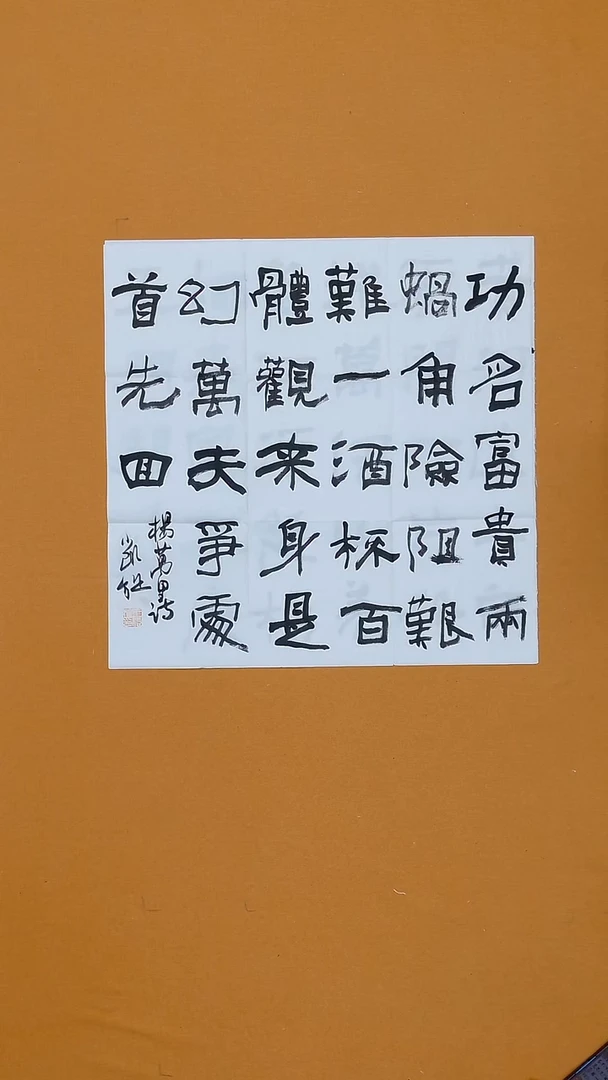 功名富貴兩
蝸角險阻艱
難一酒杯百
體觀来身是
幻萬夫爭處
首先回
楊萬里詩